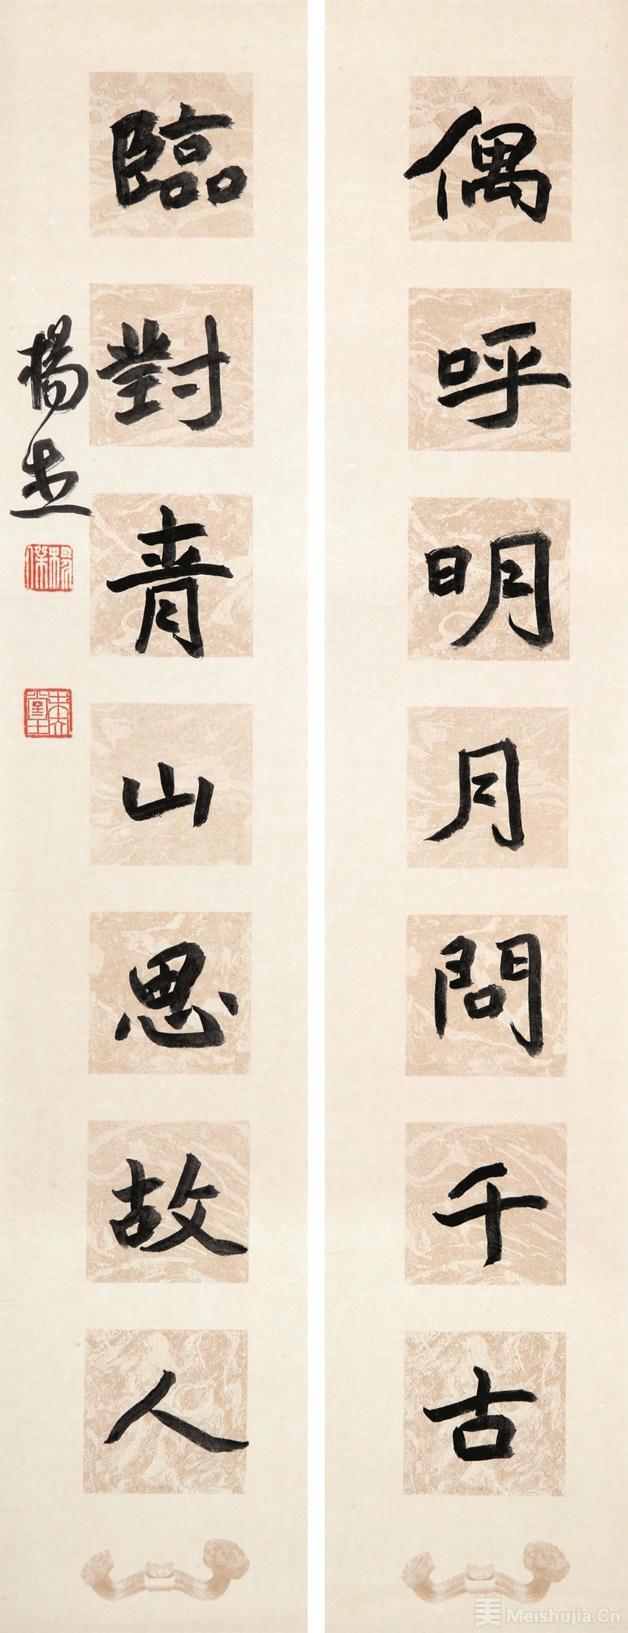 偶呼明月問千古
臨對青山思故人
楊杰
楊傑
美 Meishujia.Cn